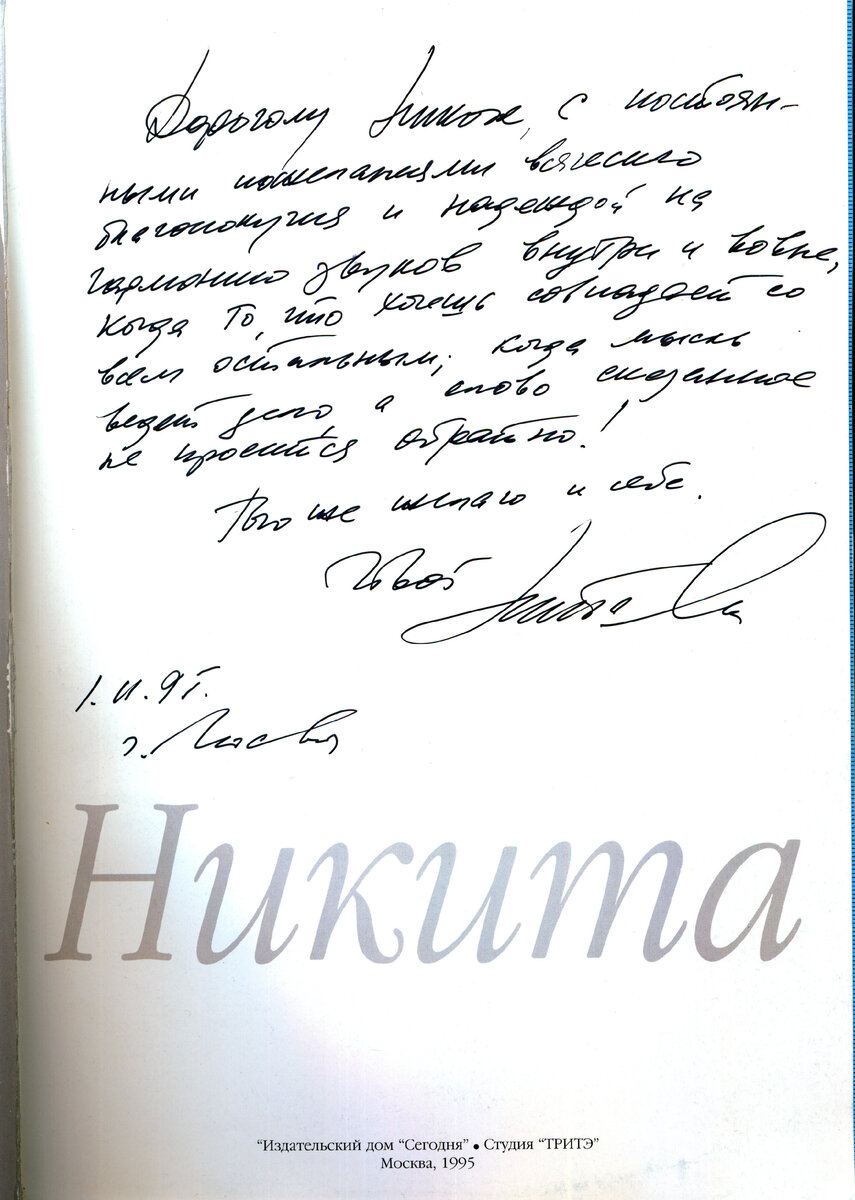 Дорогому Николе, с постоян-
ными пожеланиями всяческого
благополучия и надеждой на
гармонию звуков внутри и вовне,
когда то, что хочешь совпадает со
всем остальным, когда мысль
ведет дело, а слово сказанное
не просится обратно!
Того же желаю и себе.
Твой Никита
г. Москва
Никита
"Издательский дом "Сегодня" • Студия "ТРИТЭ"
Москва, 1995